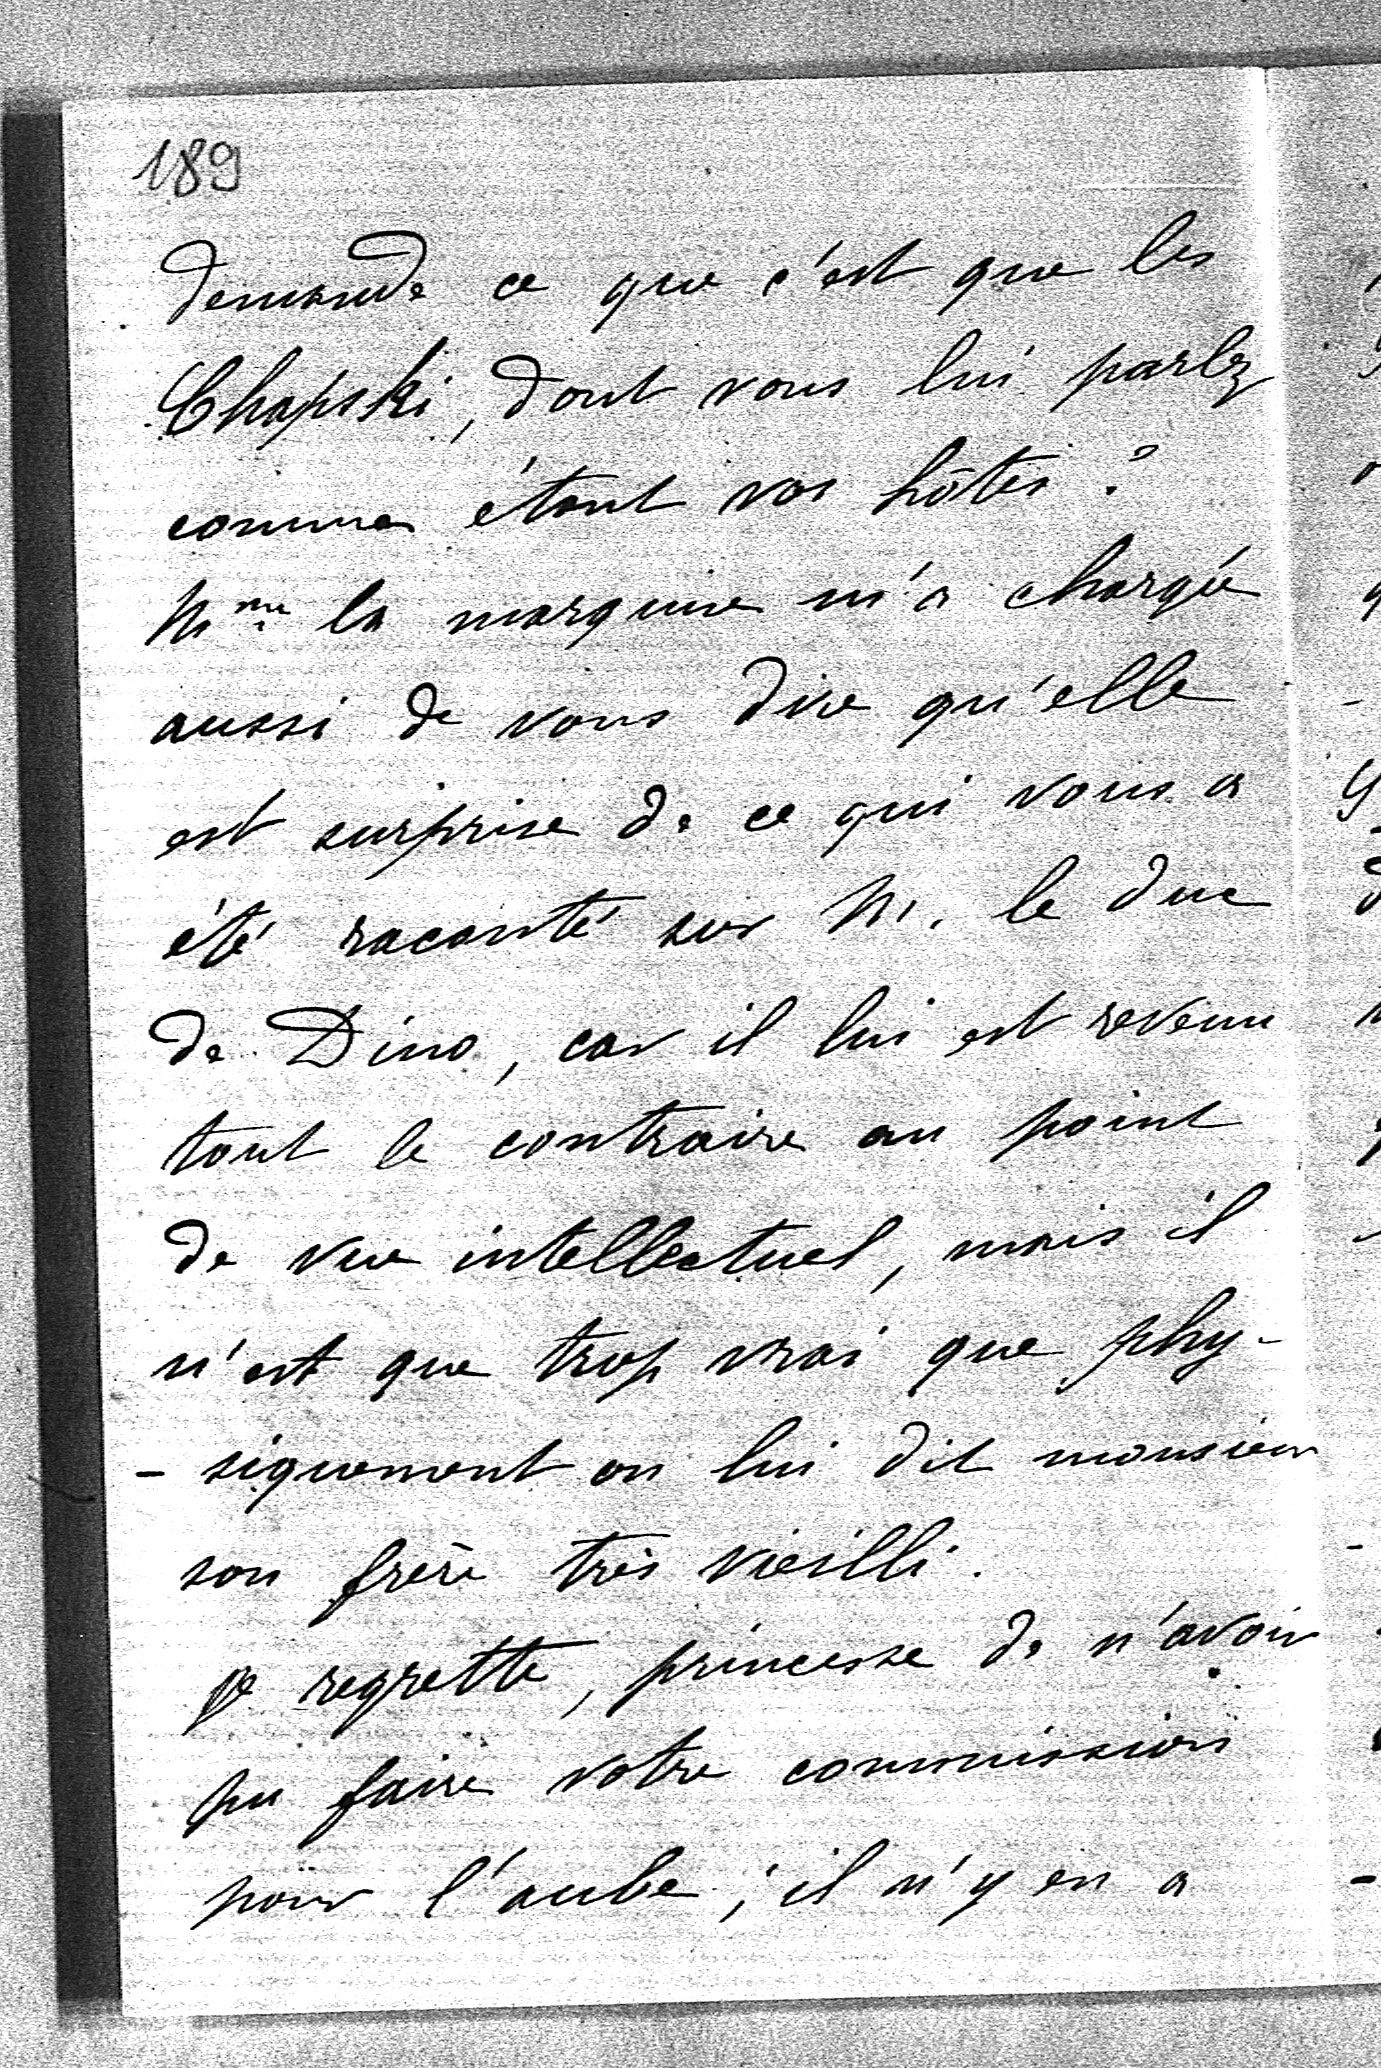 189
demande ce que c'est que les
Chapski, dont vous lui parlez
comme étant vos hôtes ?
Mme la marquise m'a chargée
aussi de vous dire qu'elle
est surprise de ce qui vous a
été raconté sur M. le duc
de Dino, car il lui est revenu
tout le contraire au point
de vue intellectuel, mais il
n'est que trop vrai que phy-
- siquement on lui dit monsieur
son frère très vieilli.
je regrette, princesse de n'avoir
pu faire votre commission
pour l'aube ; il n'y en a